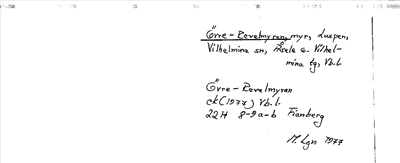 Övre-Revelmyran, myr, Luspen,
Vilhelmina sn, Åsele o. Vilhel-
mina tg, Vb. l.
Övre-Revelmyran
ek (1977) Vb. l.
22H 8-9 a-b Fianberg
M. Lgn 1977